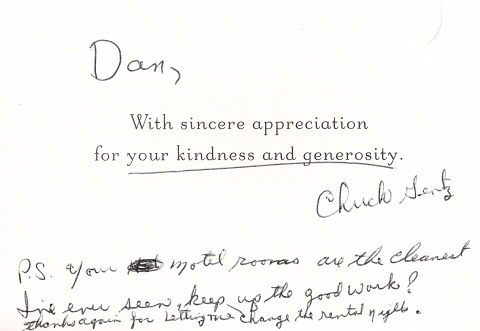 Dan,
With sincere appreciation
for your kindness and generosity.
Chuck Gentz
P.S. your motel rooms are the cleanest
I've ever seen, keep up the good work!
thanks again for letting me change the rental nights.